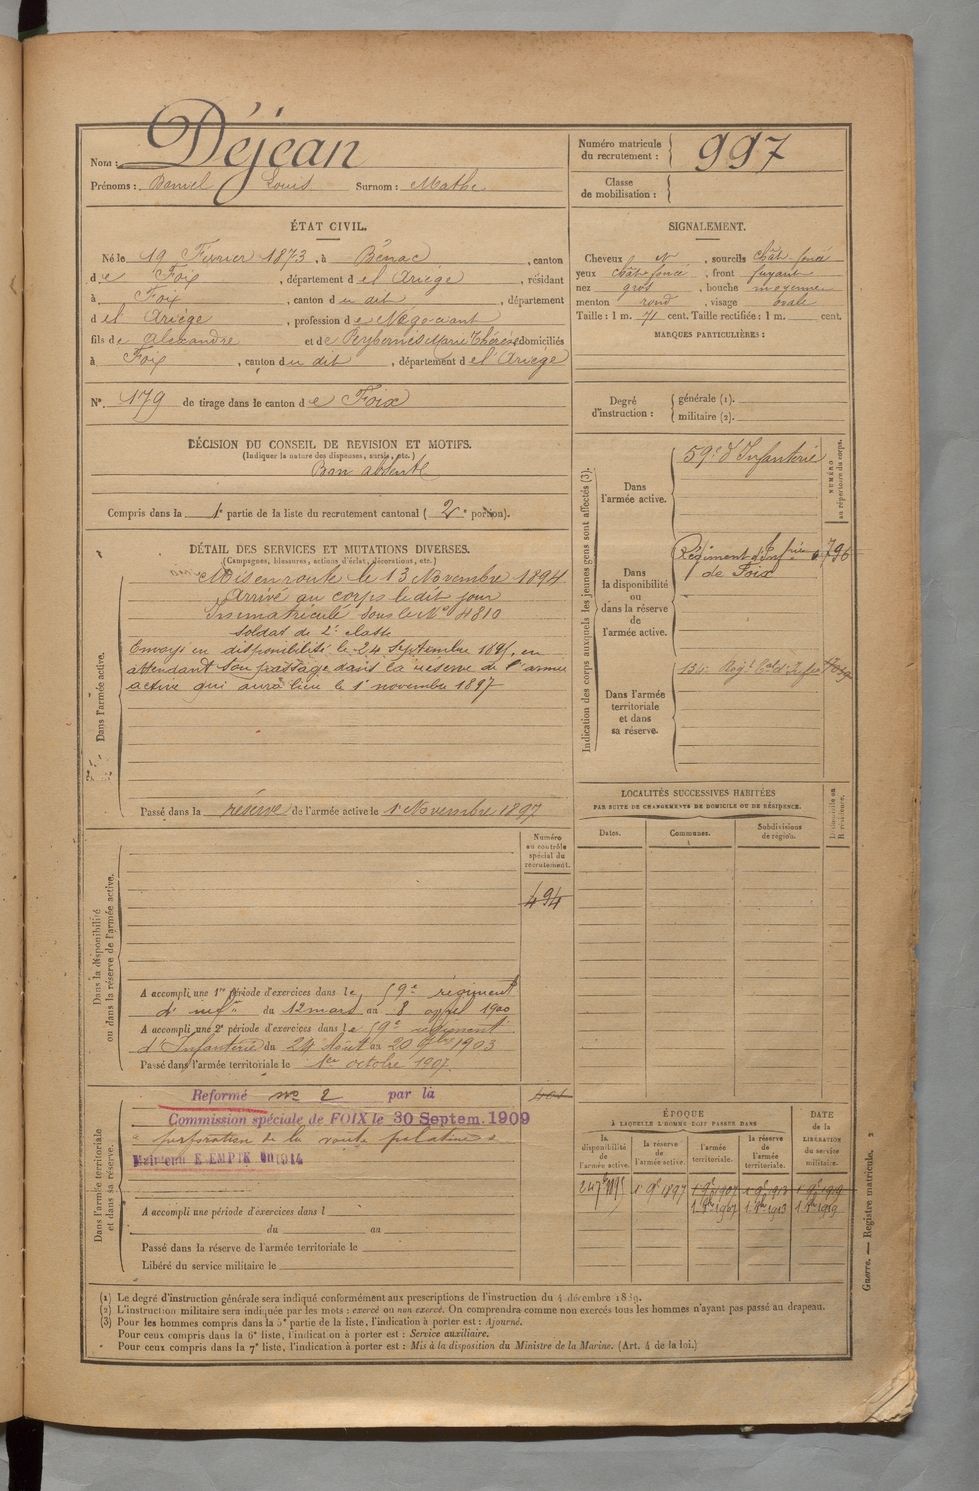 Nom : Déjean
Prénoms : Louis Surnom : Mathe
Numéro matricule du recrutement : 997
Classe de mobilisation :
ÉTAT CIVIL.
Né le 19 Février 1873, à Bénac, canton
de Foix, département de l'Ariège, résidant
à Foix, canton du dit, département
de l'Ariège, profession de Négociant
fils de Alexandre et de Peybernès Marie Thérèse domiciliés
à Foix, canton du dit, département de l'Ariège
N°. 179 de tirage dans le canton de Foix
SIGNALEMENT.
Cheveux N, sourcils chât-foncé
yeux chât foncé, front fuyant
nez gros, bouche moyenne
menton rond, visage ovale
Taille : 1 m. 71 cent. Taille rectifiée : 1 m. cent.
MARQUES PARTICULIÈRES :
Degré d'instruction : générale (1).
militaire (2).
DÉCISION DU CONSEIL DE REVISION ET MOTIFS.
(Indiquer la nature des dispenses, sursis, etc.)
Bon absent
Compris dans la 1e partie de la liste du recrutement cantonal ( 2e portion).
DÉTAIL DES SERVICES ET MUTATIONS DIVERSES.
(Campagnes, blessures, actions d'éclat, décorations, etc.)
Dans l'armée active.
Mis en route le 13 Novembre 1894
Arrivé au corps le dit jour
Immatriculé sous le N° 4810
soldat de 2e classe
Envoyé en disponibilité le 24 Septembre 1895, en
attendant son passage dans la réserve de l'armée
active qui aura lieu le 1er novembre 1897
Passé dans la réserve de l'armée active le 1er Novembre 1897
Indication des corps auxquels les jeunes gens sont affectés (3).
NUMÉRO au répertoire du corps.
Dans l'armée active.
59e d'Infanterie
Dans la disponibilité ou dans la réserve de l'armée active.
Régiment d'Infrie
de Foix
Dans l'armée territoriale et dans sa réserve.
LOCALITÉS SUCCESSIVES HABITÉES
PAR SUITE DE CHANGEMENTS DE DOMICILE OU DE RÉSIDENCE.
Dates. Communes. Subdivisions de région.
Numéro au contrôle spécial du recrutement.
494
Dans la disponibilité ou dans la réserve de l'armée active.
A accompli une 1re période d'exercices dans le 59e régiment
d'infie du 12 mars au 8 1900
A accompli une 2e période d'exercices dans le 59e régiment
d'Infanterie du 24 Août au 20 7bre 1903
Passé dans l'armée territoriale le 1er octobre 1907.
Dans l'armée territoriale et dans sa réserve.
Reformé no 2 par la
Commission spéciale de FOIX le 30 Septem. 1909
perforation de la voute palatine
Maintenu 1914
A accompli une période d'exercices dans l
du au
Passé dans la réserve de l'armée territoriale le
Libéré du service militaire le
ÉPOQUE
À LAQUELLE L'HOMME DOIT PASSER DANS
la disponibilité de l'armée active.
la réserve de l'armée active.
l'armée territoriale.
la réserve de l'armée territoriale.
DATE de la LIBÉRATION du service militaire.
24 7bre 1895 1er 9bre 1897 1er 9bre 1907 1er 9bre 1913 1er 9bre 1919
1er 8bre 1907 1er 8bre 1913 1er 8bre 1919
Guerre. — Registre matricule. 2
(1) Le degré d'instruction générale sera indiqué conformément aux prescriptions de l'instruction du 4 décembre 1889.
(2) L'instruction militaire sera indiquée par les mots : exercé ou non exercé. On comprendra comme non exercés tous les hommes n'ayant pas passé au drapeau.
(3) Pour les hommes compris dans la 5e partie de la liste, l'indication à porter est : Ajourné.
Pour ceux compris dans la 6e liste, l'indication à porter est : Service auxiliaire.
Pour ceux compris dans la 7e liste, l'indication à porter est : Mis à la disposition du Ministre de la Marine. (Art. 4 de la loi.)